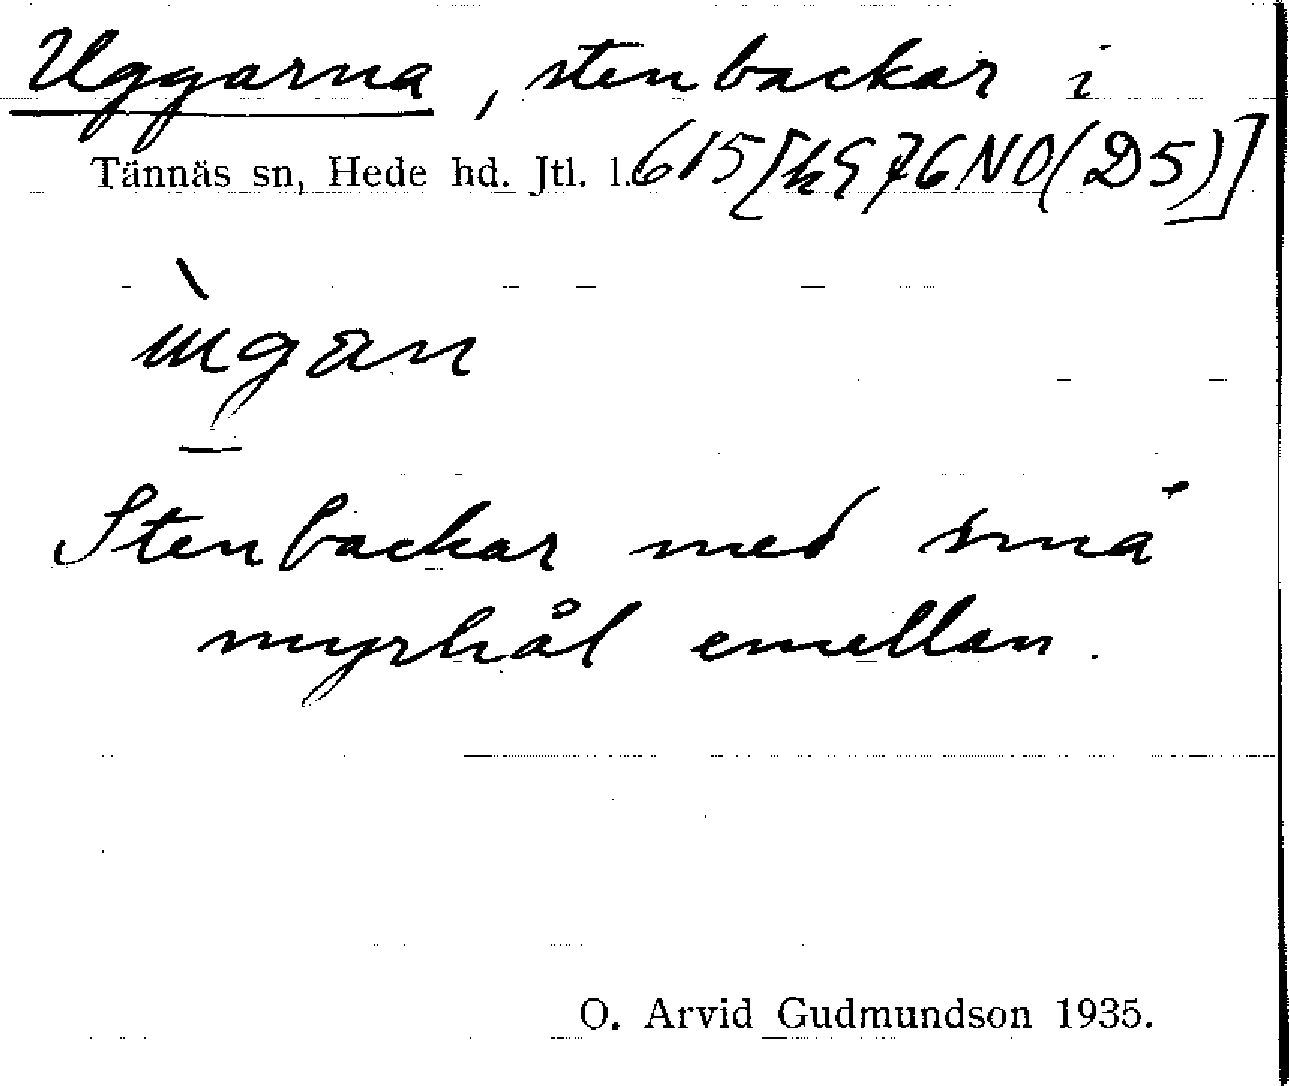 Uggarna, stenbackar i
Tännäs sn, Hede hd. Jtl. l. 615 [kg 76 NO (D5)]
ùgan
Stenbackar med små
myrhål emellan.
O. Arvid Gudmundson 1935.